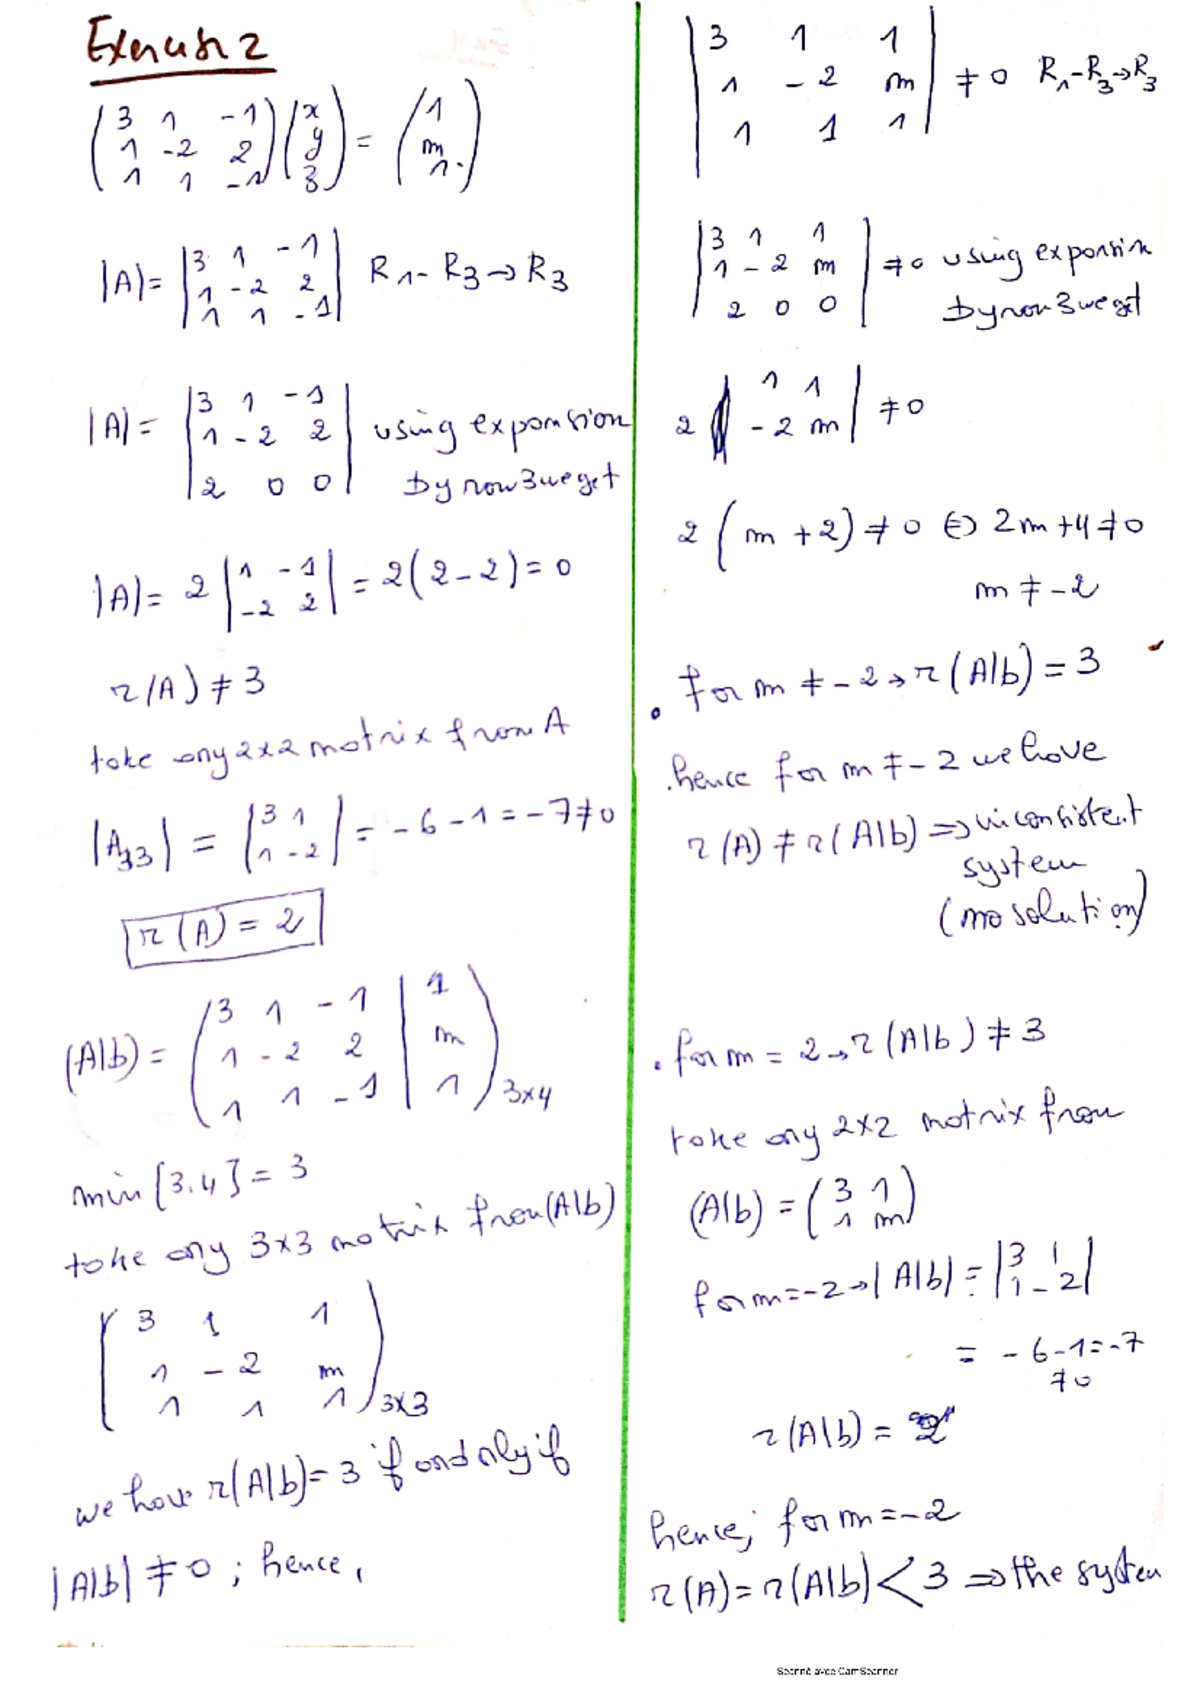 Exercise 2
(3 1 -1) (x) = (1)
(1 -2 2) (y) (m)
(1 1 -1) (z) (1.)
|A| = |3 1 -1| R1 - R3 → R3
|1 -2 2|
|1 1 -1|
|A| = |3 1 -1|
|1 -2 2| using expansion
|2 0 0| by row 3 we get
|A| = 2 |1 -1| = 2(2-2) = 0
|-2 2|
r(A) ≠ 3
take any 2x2 matrix from A
|A33| = |3 1| = -6-1 = -7 ≠ 0
|1 -2|
r(A) = 2
(A|b) = (3 1 -1 | 1)
(1 -2 2 | m)
(1 1 -1 | 1) 3x4
min {3.4} = 3
take any 3x3 matrix from (A|b)
(3 1 1)
(1 -2 m)
(1 1 1) 3x3
we have r(A|b) = 3 if and only if
|A|b| ≠ 0 ; hence,
|3 1 1|
|1 -2 m| ≠ 0 R1 - R3 → R3
|1 1 1|
|3 1 1|
|1 -2 m| ≠ 0 using expansion
|2 0 0| by row 3 we get
2 |1 1| ≠ 0
|-2 m|
2 (m + 2) ≠ 0 ⇔ 2m + 4 ≠ 0
m ≠ -2
. for m ≠ -2 → r(A|b) = 3
.hence for m ≠ -2 we have
r(A) ≠ r(A|b) ⇒ inconsistent
system
(no solution)
. for m = 2 → r(A|b) ≠ 3
take any 2x2 matrix from
(A|b) = (3 1)
(1 m)
for m = -2 → |A|b| = |3 1|
|1 -2|
= -6-1 = -7
≠ 0
r(A|b) = 2
hence, for m = -2
r(A) = r(A|b) < 3 ⇒ the system
Scanné avec CamScanner